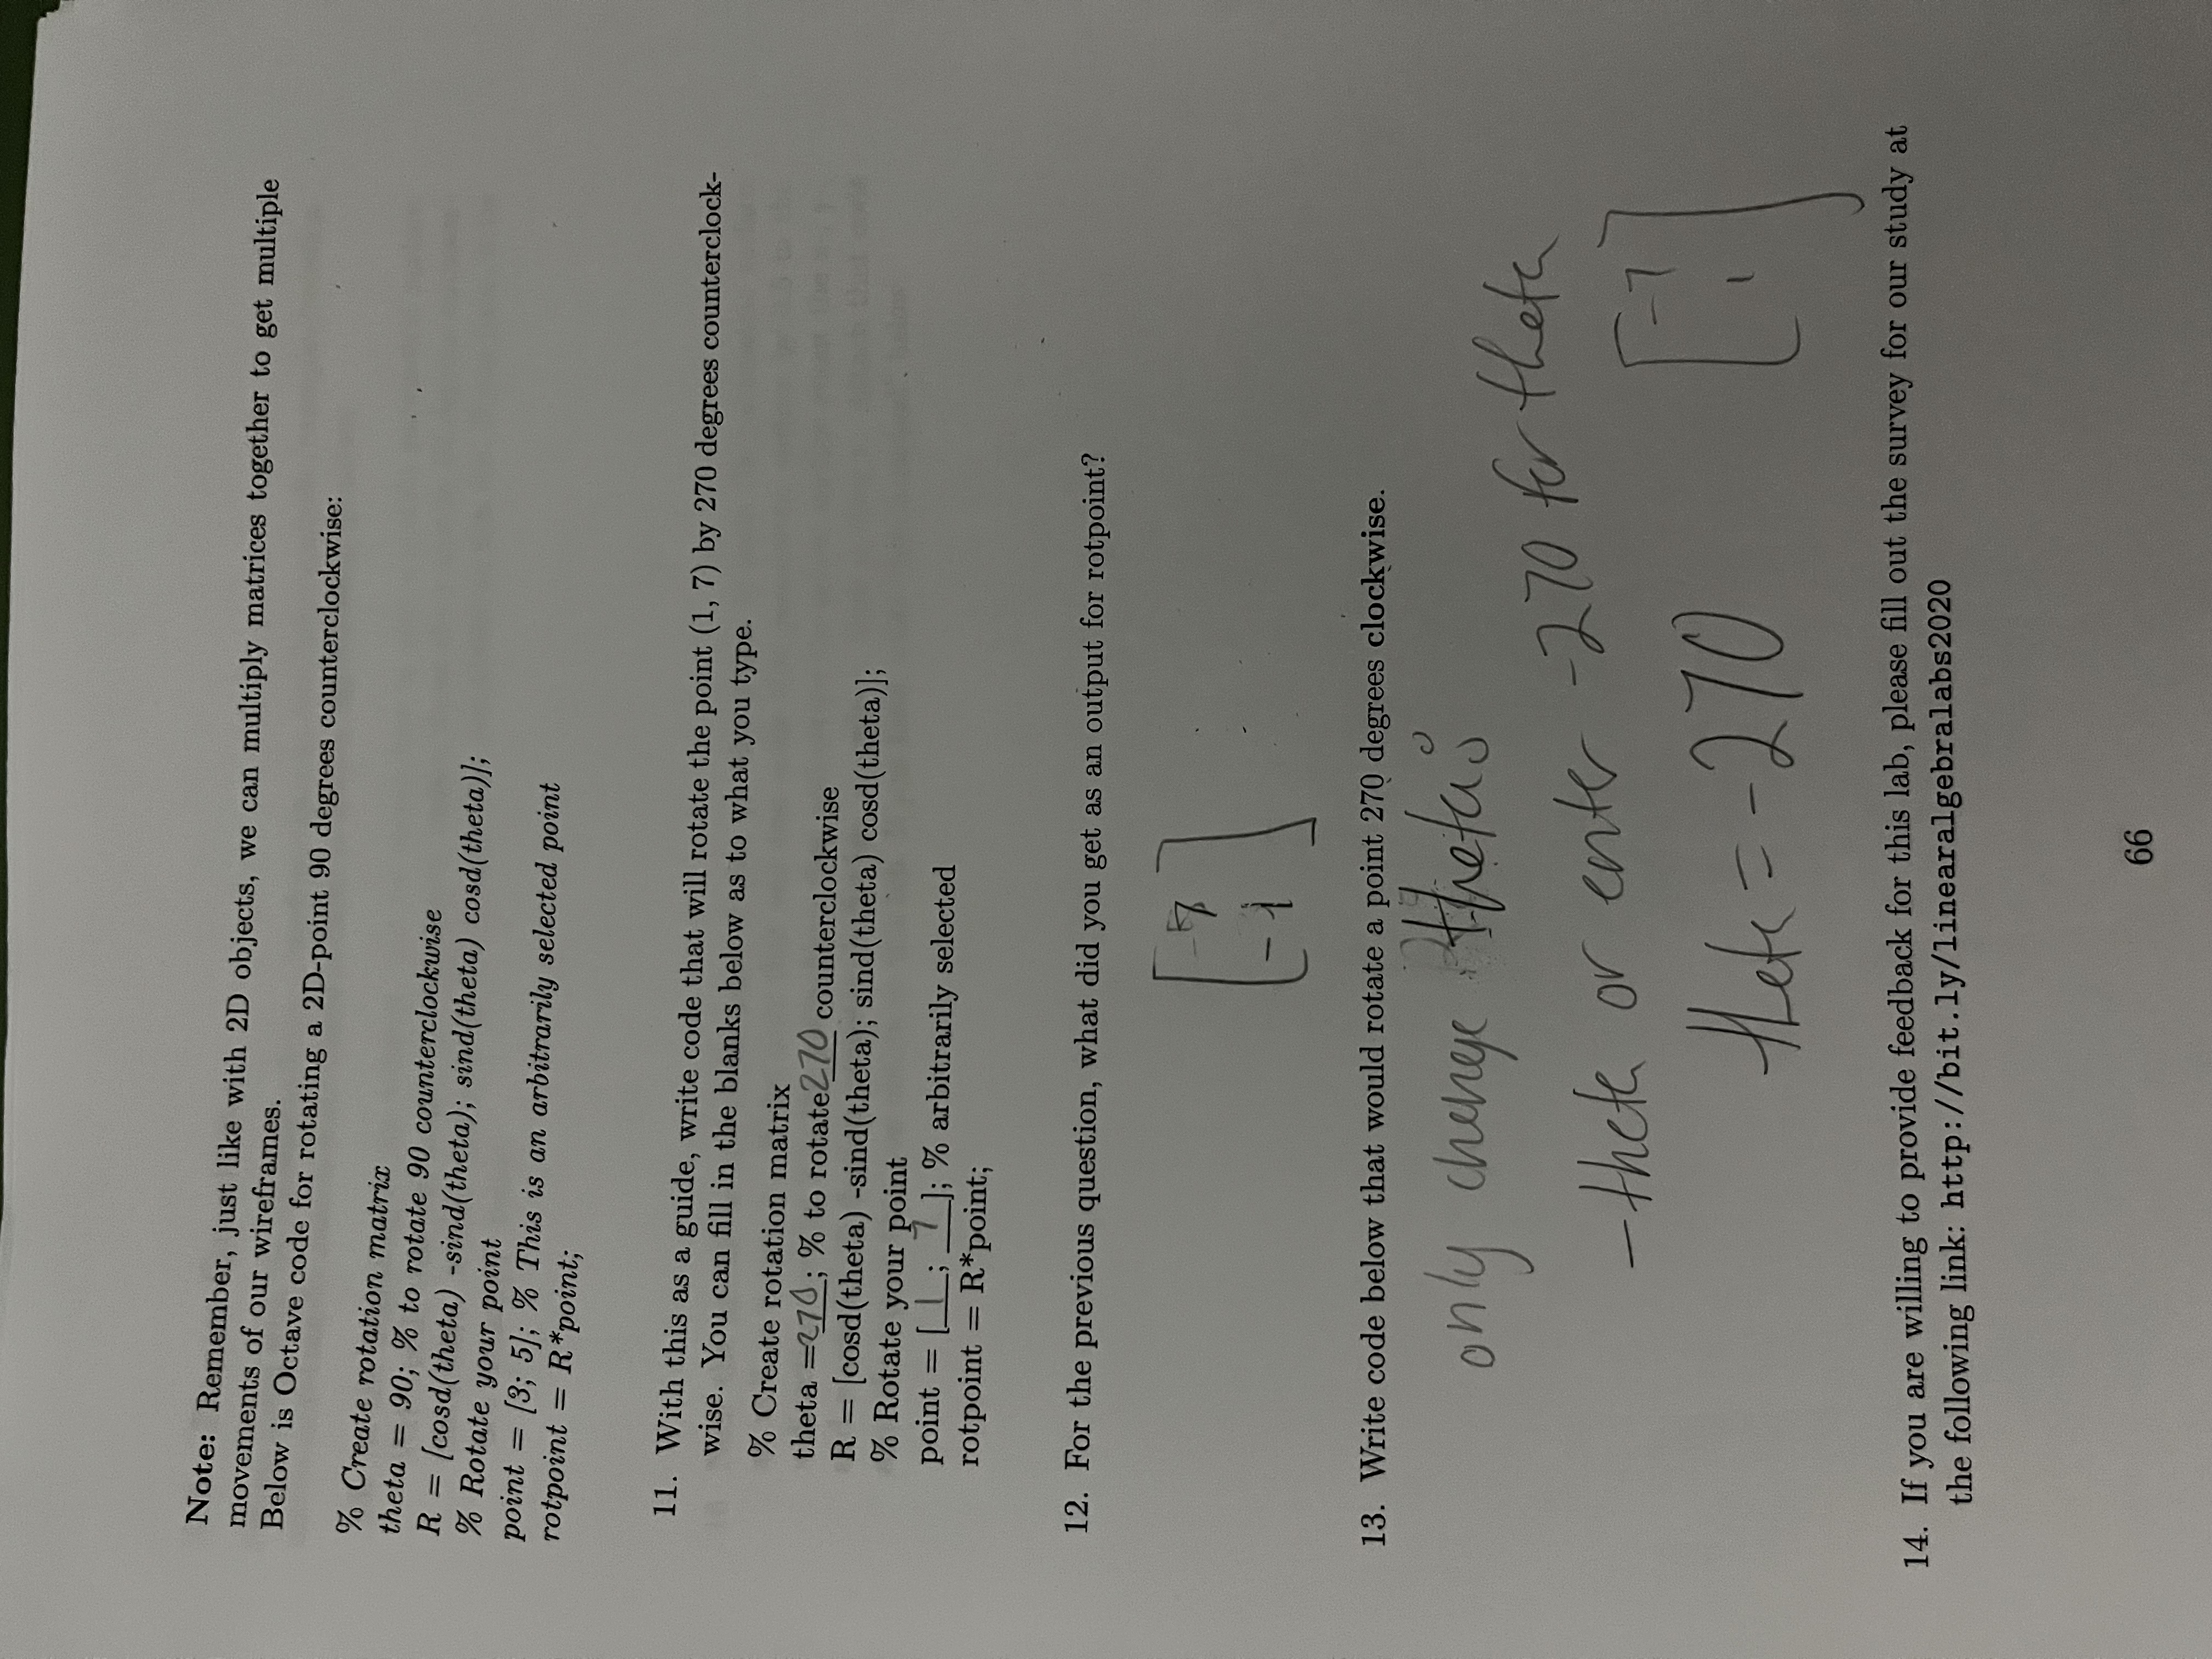 Note: Remember, just like with 2D objects, we can multiply matrices together to get multiple
movements of our wireframes.
Below is Octave code for rotating a 2D-point 90 degrees counterclockwise:
% Create rotation matrix
theta = 90; % to rotate 90 counterclockwise
R = [cosd(theta) -sind(theta); sind(theta) cosd(theta)];
% Rotate your point
point = [3; 5]; % This is an arbitrarily selected point
rotpoint = R*point;
11. With this as a guide, write code that will rotate the point (1, 7) by 270 degrees counterclock-
wise. You can fill in the blanks below as to what you type.
% Create rotation matrix
theta =270; % to rotate 270 counterclockwise
R = [cosd(theta) -sind(theta); sind(theta) cosd(theta)];
% Rotate your point
point = [1; 7]; % arbitrarily selected
rotpoint = R*point;
12. For the previous question, what did you get as an output for rotpoint?
7
-1
13. Write code below that would rotate a point 270 degrees clockwise.
only change theta's
-theta or enter -270 for theta
theta = -270
-7
1
14. If you are willing to provide feedback for this lab, please fill out the survey for our study at
the following link: http://bit.ly/linearalgebralabs2020
66